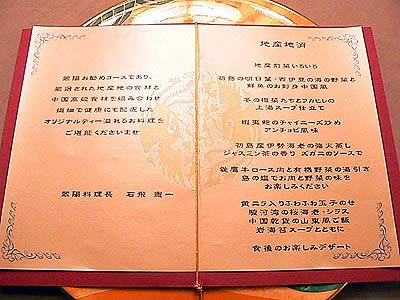 紫陽お勧めコースであり、
厳選された地産地の食材と
中国高級食材を組み合わせ
繊細で健康にも配慮した
オリジナルティー溢れるお料理を
ご堪能くださいませ
紫陽料理長 石飛 憲一
地産地消
地産前菜いろいろ
初島の明日葉・西伊豆の海の野菜と
鮮魚のお刺身中国風
冬の根菜たちとフカヒレの
上湯スープ仕立て
蝦夷鮑のチャイニーズ炒め
アンチョビ風味
初島産伊勢海老の強火蒸し
ジャスミン茶の香り ズガニのソースで
牛ロース肉と有機野菜の湯引き
島の塩でお肉と野菜の味を
お楽しみください
黄ニラ入りふわふわ玉子のせ
駿河湾の桜海老・シラス
中国乾貨の山東風ご飯
岩海苔スープとともに
食後のお楽しみデザート